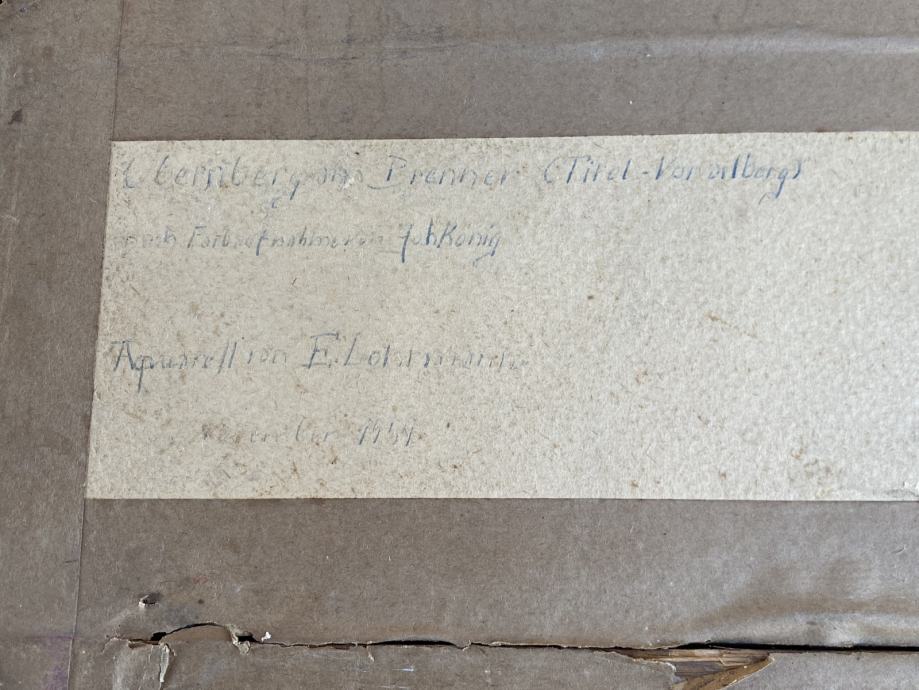 Obernberg am Brenner (Titel-Vorarlberg)
nach Farbaufnahme von Joh König
Aquarell von E.
November